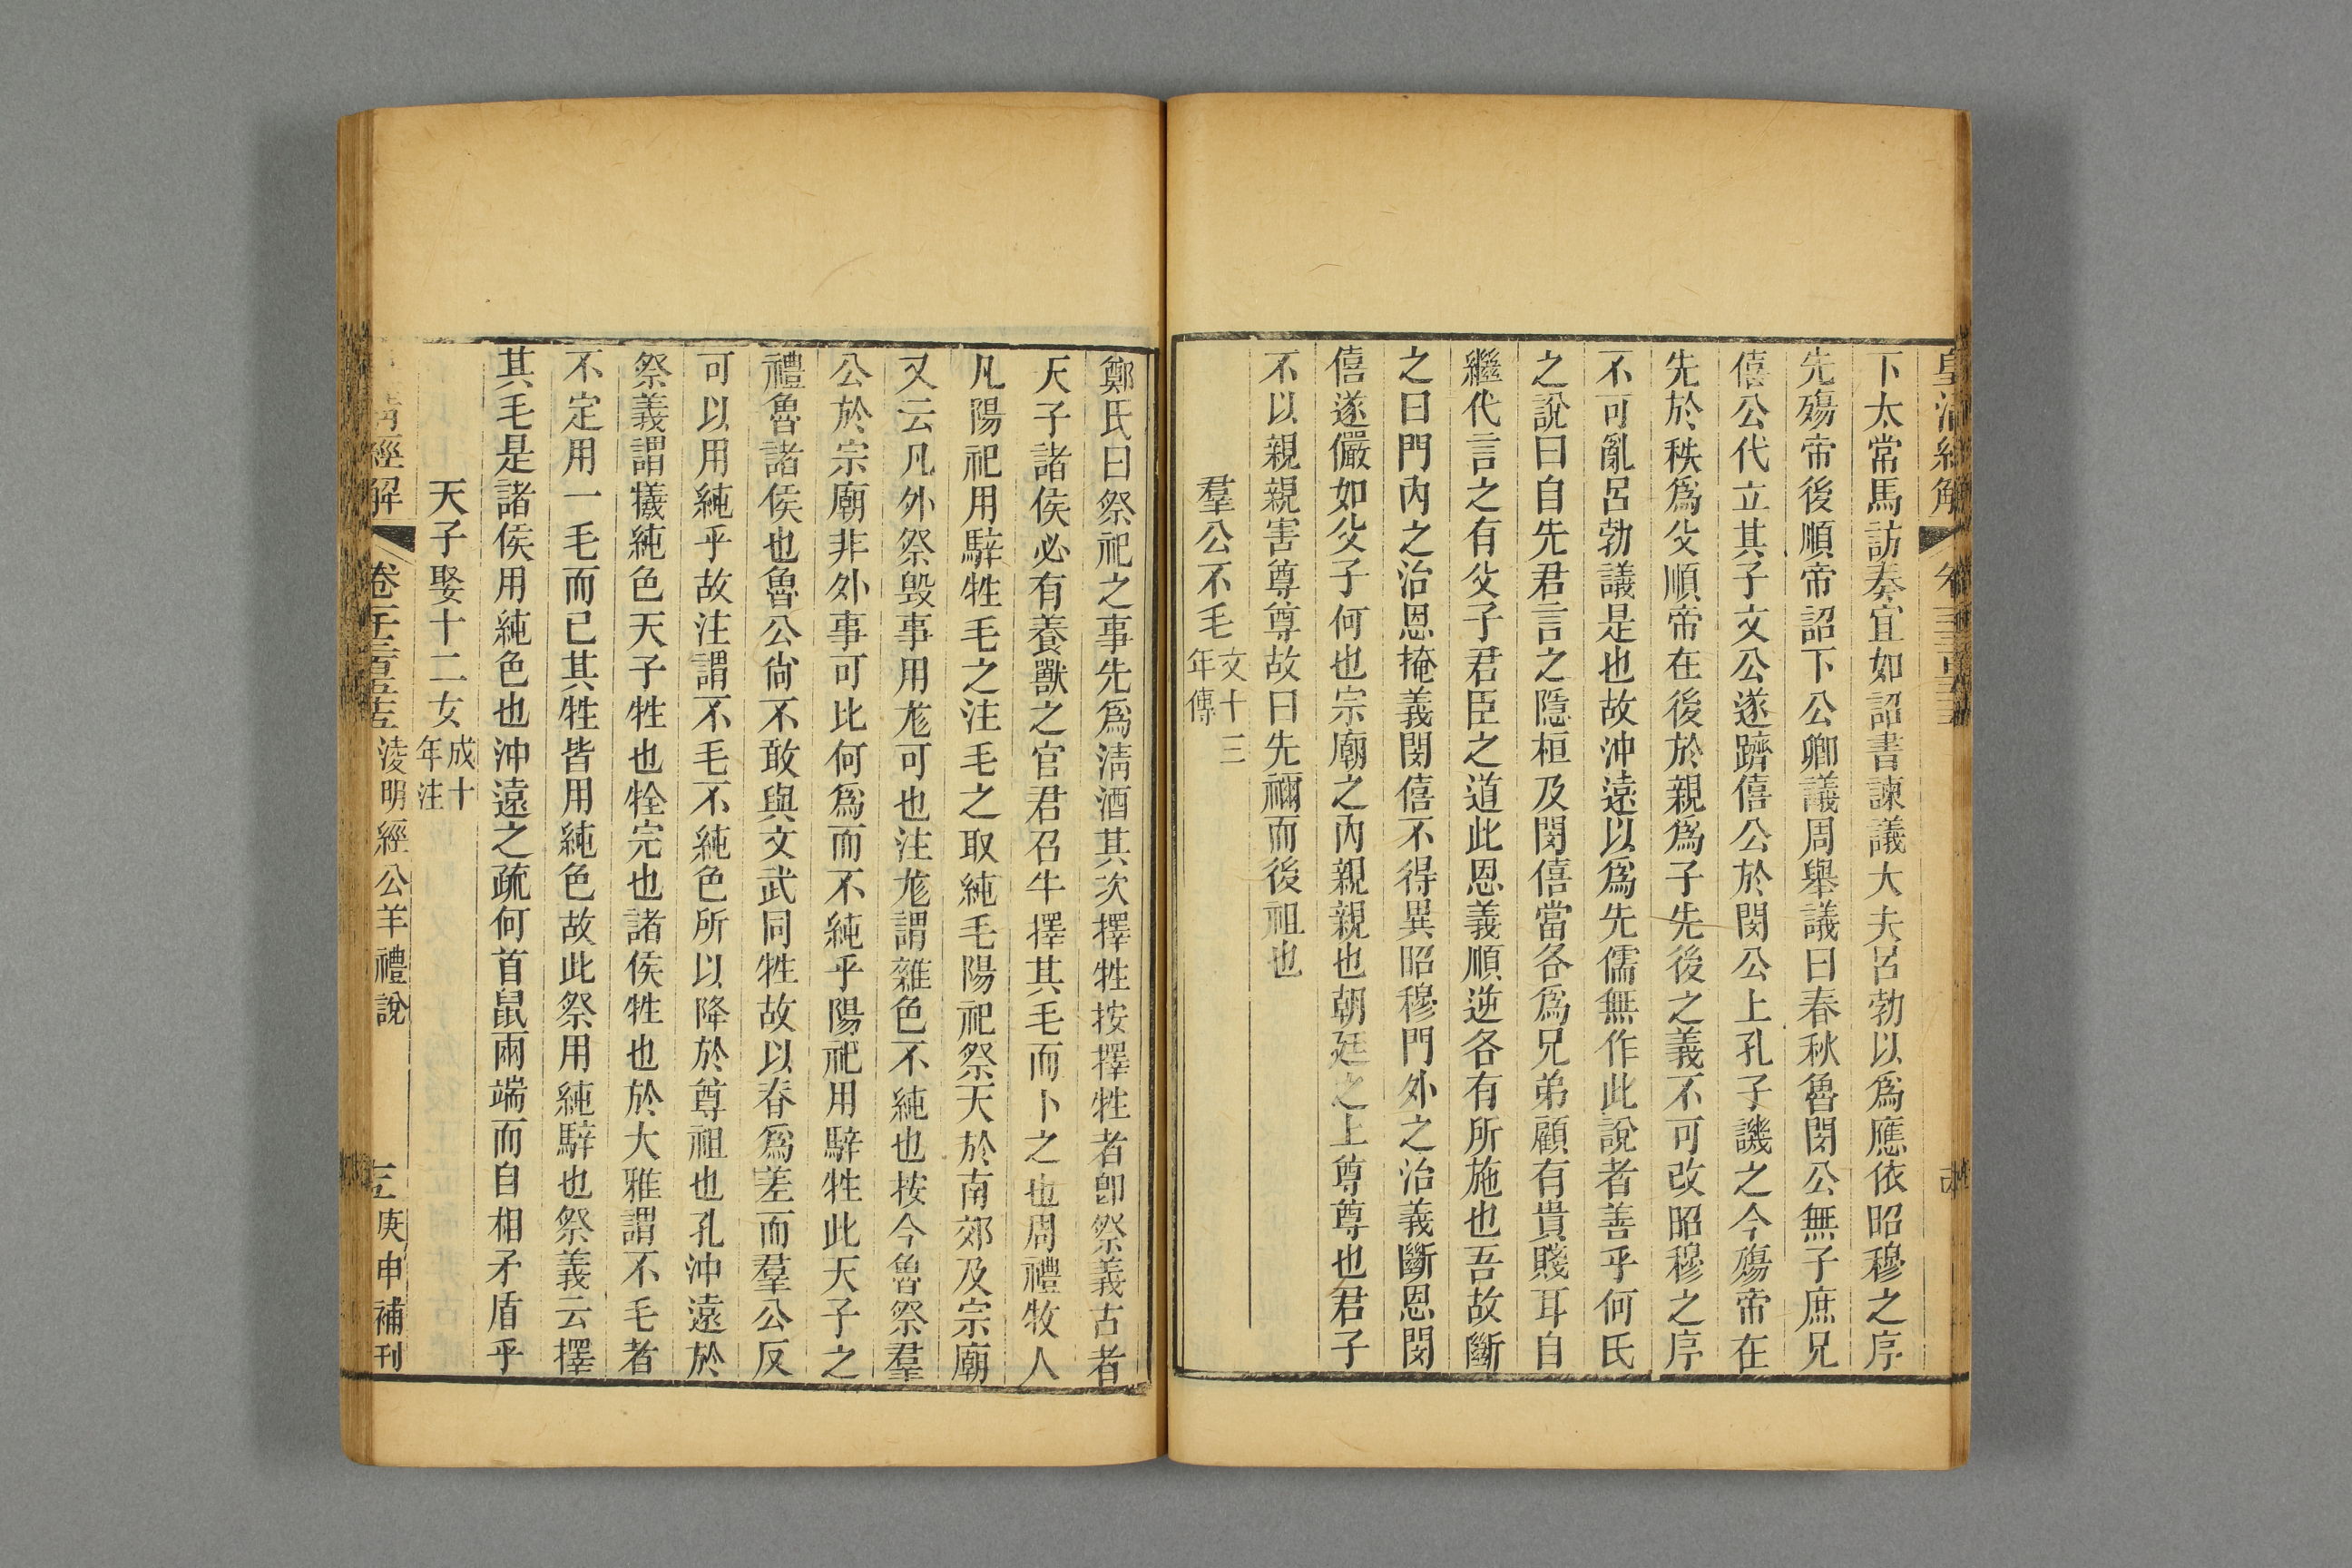 皇清經解
下太常馬訪奏宜如詔書諫議大夫呂勃以爲應依昭穆之序
先殤帝後順帝詔下公卿議周舉議曰春秋魯閔公無子庶兄
僖公代立其子文公遂躋僖公於閔公上孔子譏之今殤帝在
先於秩爲父順帝在後於親爲子先後之義不可改昭穆之序
不可亂呂勃議是也故沖遠以爲先儒無作此說者善乎何氏
之說曰自先君言之隱桓及閔僖當各爲兄弟顧有貴賤耳自
繼代言之有父子君臣之道此恩義順逆各有所施也吾故斷
之曰門內之治恩掩義閔僖不得異昭穆門外之治義斷恩閔
僖遂儼如父子何也宗廟之內親親也朝廷之上尊尊也君子
不以親親害尊尊故曰先禰而後祖也
羣公不毛文十三年傳
鄭氏曰祭祀之事先爲淸酒其次擇牲按擇牲者卽祭義古者
天子諸侯必有養獸之官君召牛擇其毛而卜之也周禮牧人
凡陽祀用騂牲毛之注毛之取純毛陽祀祭天於南郊及宗廟
又云凡外祭毀事用尨可也注尨謂雜色不純也按今魯祭羣
公於宗廟非外事可比何爲而不純乎陽祀用騂牲此天子之
禮魯諸侯也魯公尙不敢與文武同牲故以春爲差而羣公反
可以用純乎故注謂不毛不純色所以降於尊祖也孔沖遠於
祭義謂犧純色天子牲也牷完也諸侯牲也於大雅謂不毛者
不定用一毛而已其牲皆用純色故此祭用純騂也祭義云擇
其毛是諸侯用純色也沖遠之疏何首鼠兩端而自相矛盾乎
天子娶十二女成十年注
淸經解 卷 淩明經公羊禮說 庚申補刊